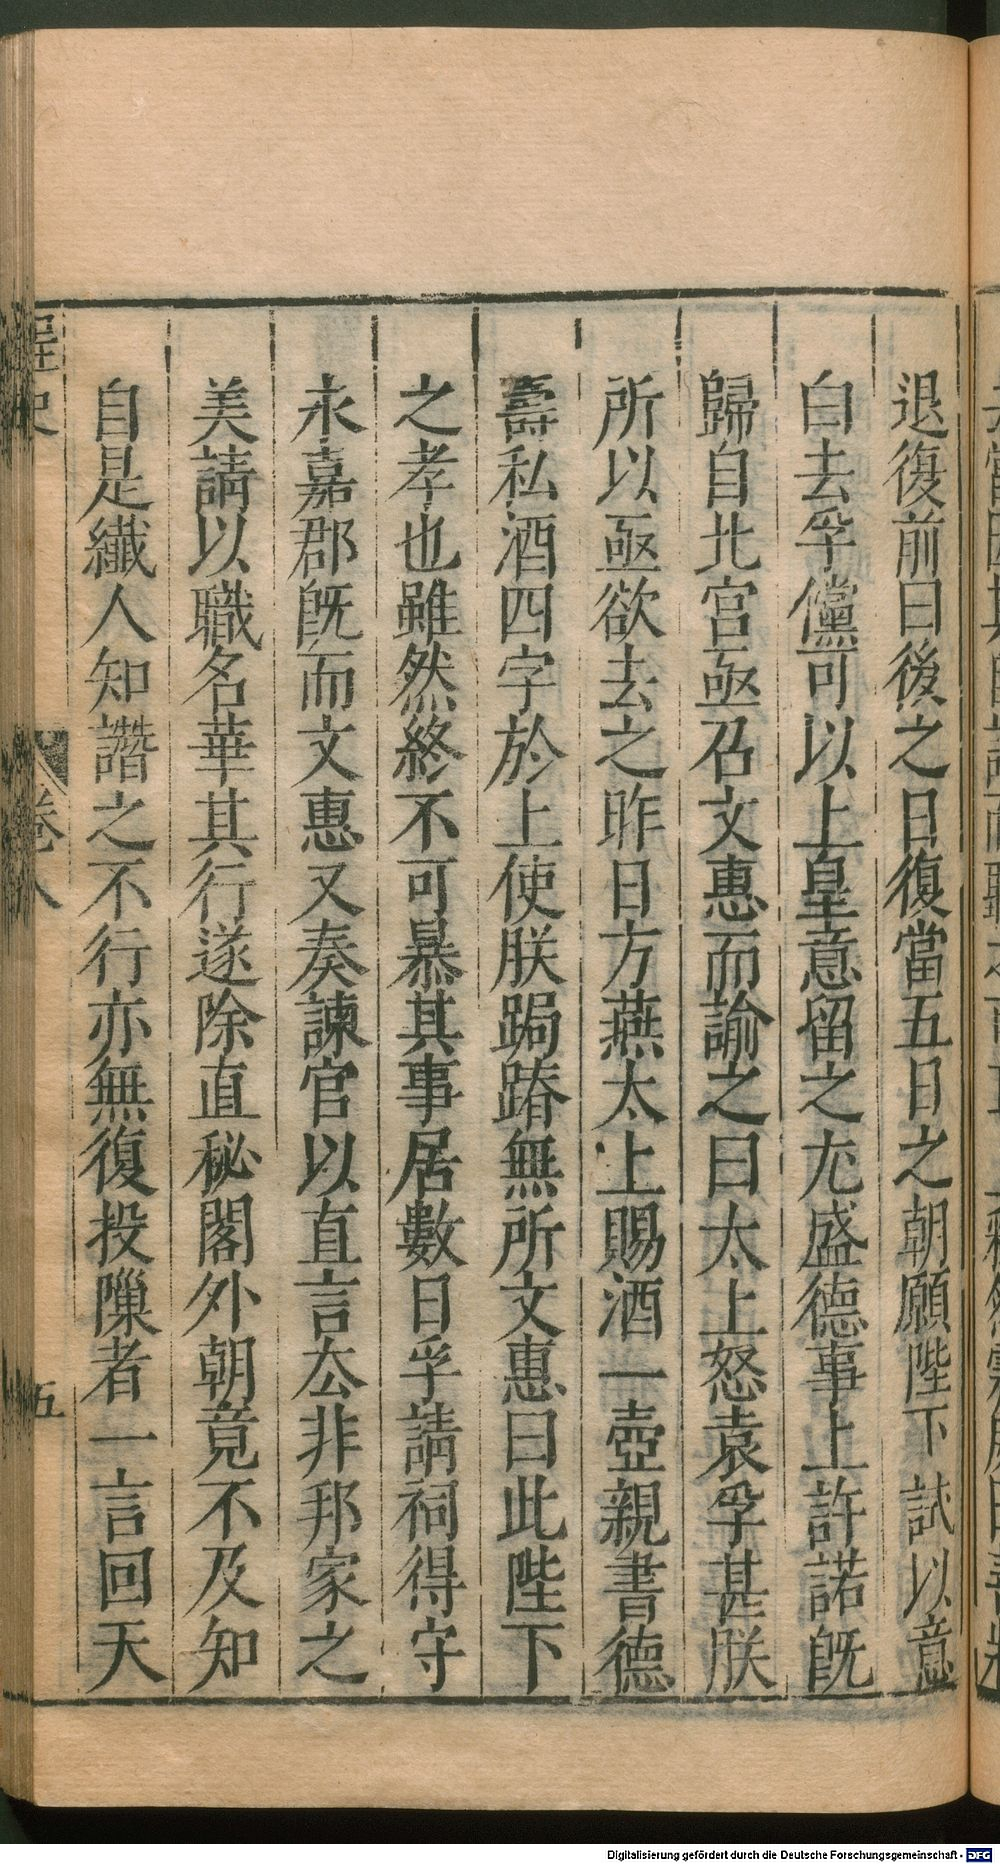 退復前曰後之日復當五日之朝願陛下試以意
白去孚儻可以上皇意留之尤盛德事上許諾旣
歸自北宮亟召文惠而諭之曰太上怒袁孚甚朕
所以亟欲去之昨日方燕太上賜酒一壺親書德
壽私酒四字於上使朕跼蹐無所文惠曰此陛下
之孝也雖然終不可暴其事居數日孚請祠得守
永嘉郡旣而文惠又奏諫官以直言去非邦家之
美請以職名華其行遂除直秘閣外朝竟不及知
自是纖人知譖之不行亦無復投隟者一言回天
桯史
卷八
五
Digitalisierung gefördert durch die Deutsche Forschungsgemeinschaft - DFG